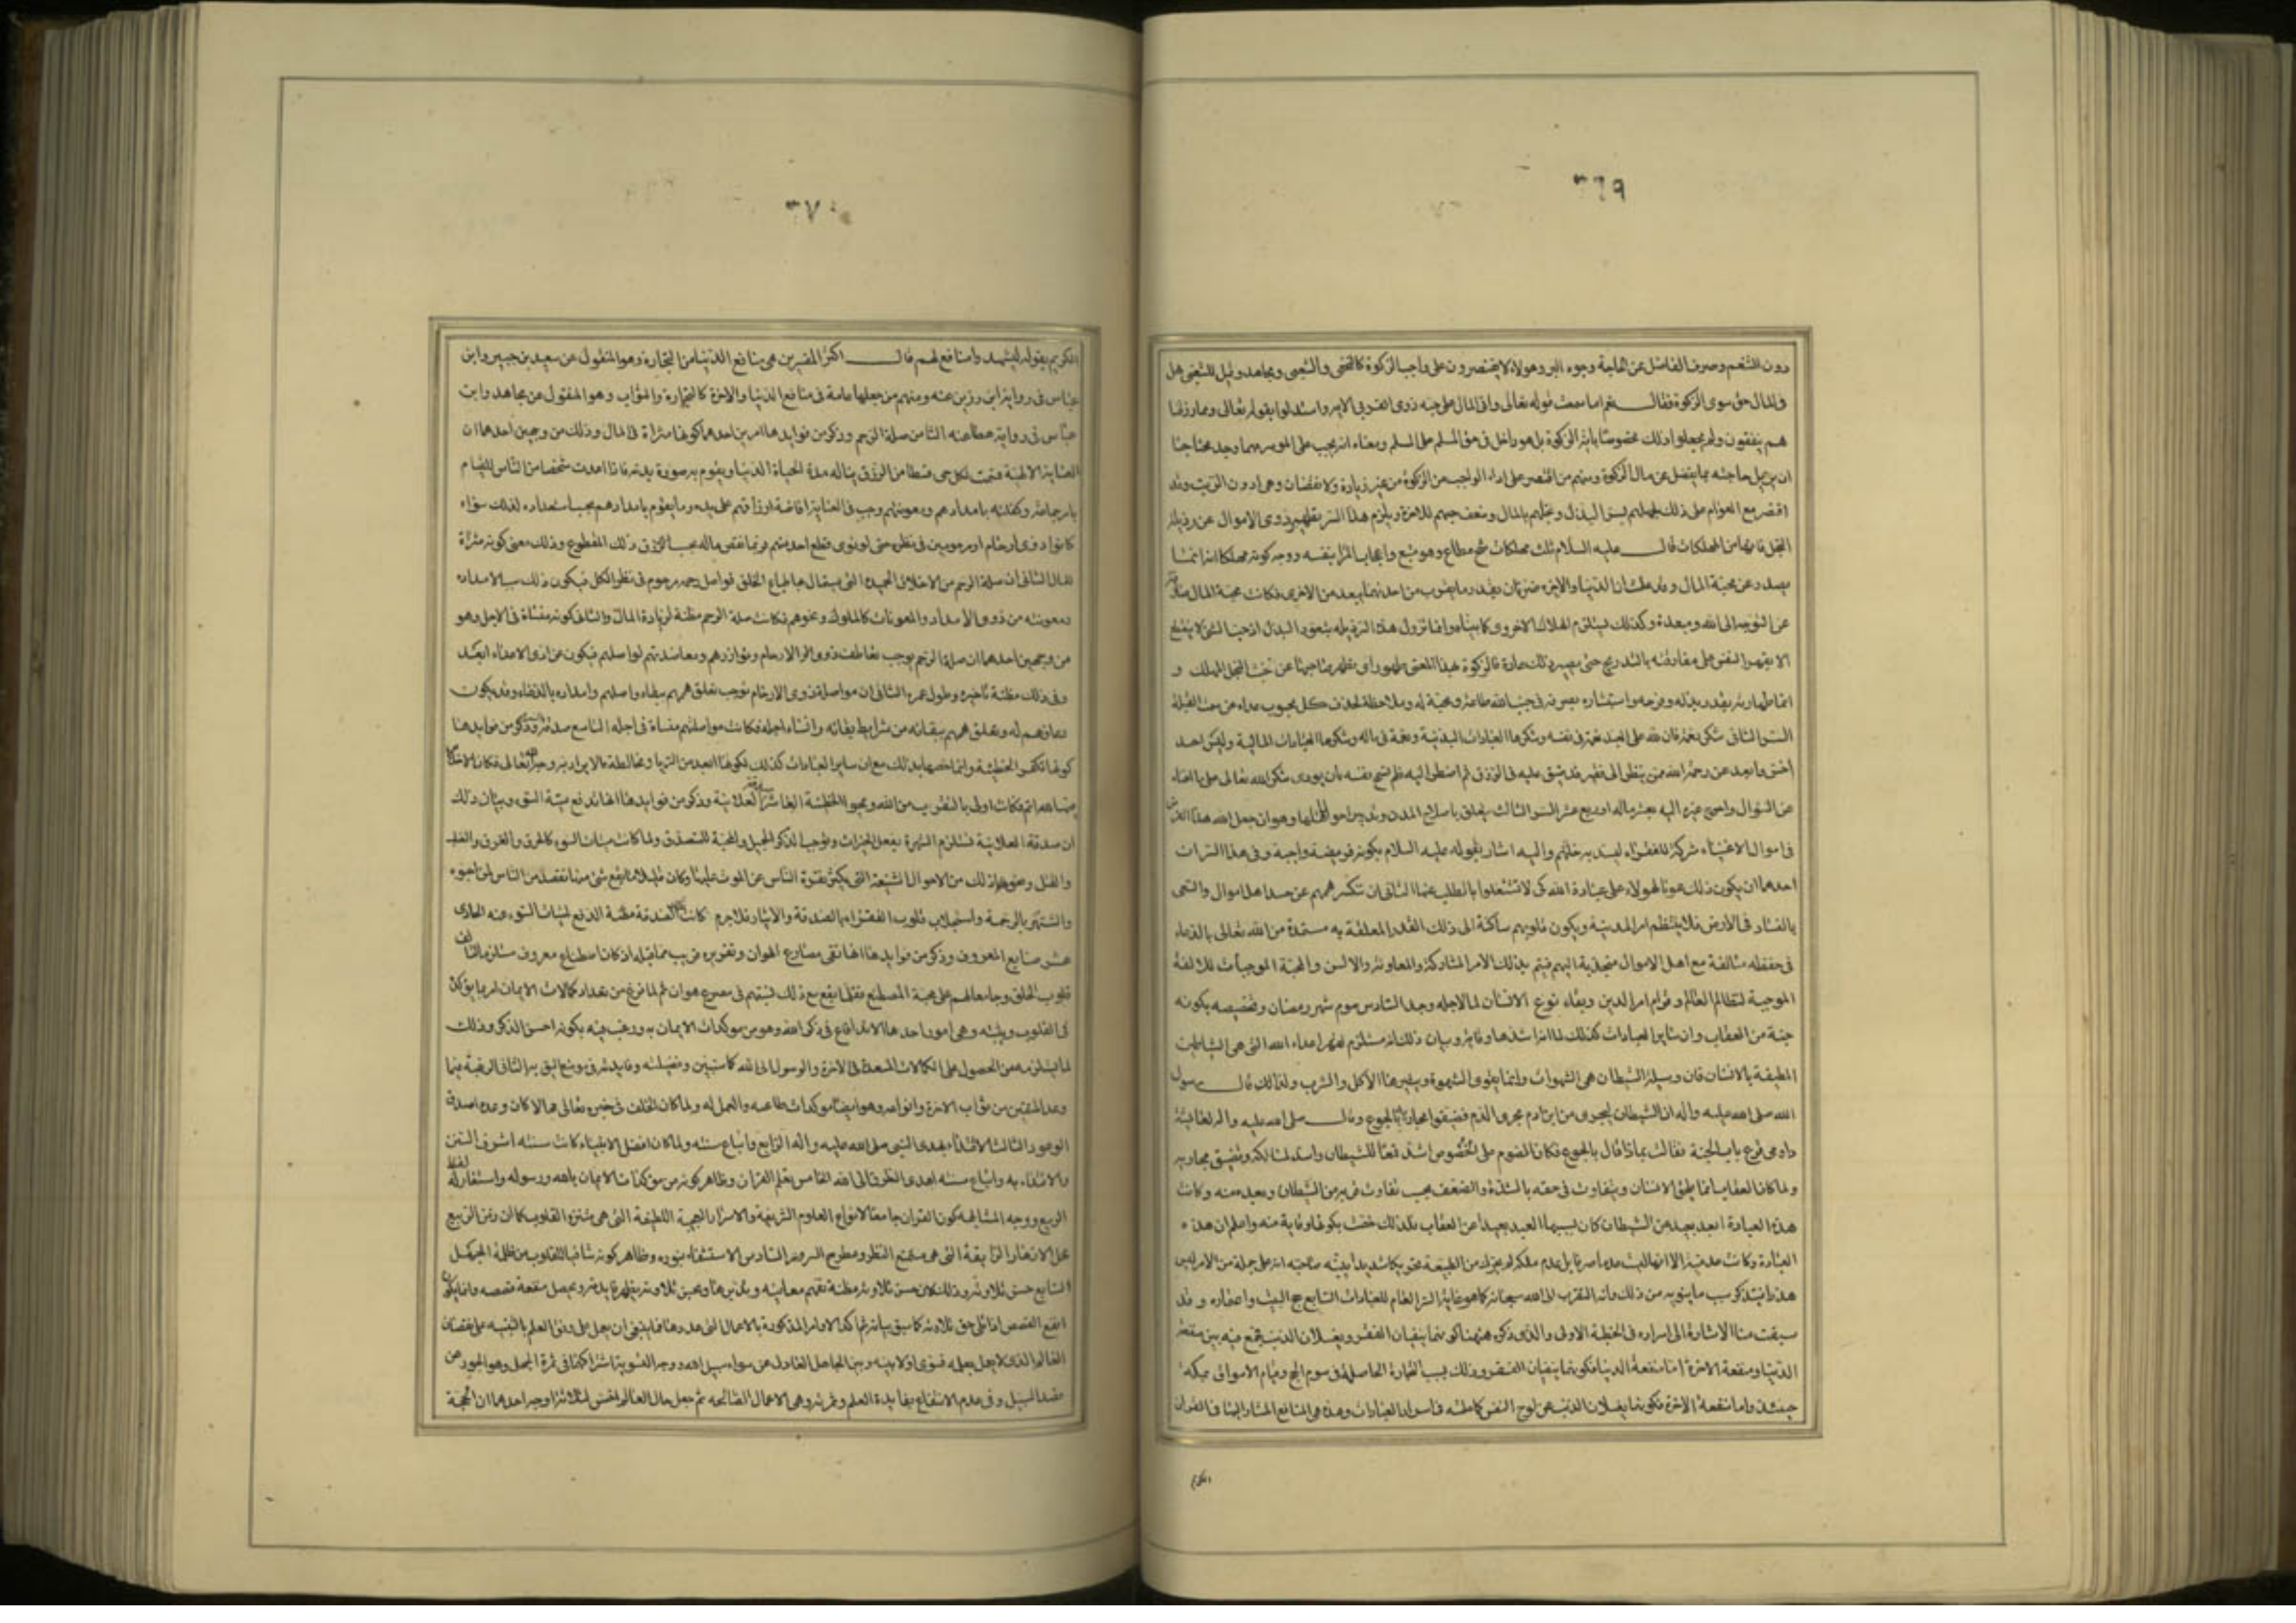 ٣٦٩
دون التنعم وصرف الفاضل عن الحاجة وجوه البر وهولاء لا يقتصرون على واجب الزكوة كالنخعى والشعبى ومجاهد وقيل للشعبى هل
فى المال حق سوى الزكوة فقال نعم اما سمعت قوله تعالى واتى المال على حبه ذوى القربى الاية واستدلوا بقوله تعالى ومما رزقنا
هم ينفقون ولم يجعلوا ذلك مخصوصا باية الزكوة بل هو داخل فى حق المسلم على المسلم ومعناه انه يجب على الموسر مهما وجد محتاجا
ان يزيل حاجته بما يفضل عن مال الزكوة ومنهم من اقتصر على اداء الواجب من الزكوة من غير زيادة ولا نقصان وهى ادون الرتب وقد
اقتصر مع العوام على ذلك لجهلهم بسر البذل وبخلهم بالمال وضعف حبهم للاخرة ويلزم هذا السر تطهير ذوى الاموال عن رذيلة
البخل فانها من المهلكات قال عليه السلام ثلث مهلكات شح مطاع وهوى متبع واعجاب المرء بنفسه ووجه كونه مهلكا انه انما
يصدر عن محبة المال وقد علمت ان الدنيا والاخرة ضرتان بقدر ما يقرب من احدهما يبعد من الاخرى فكانت محبة المال
عن التوجه الى الله ومبعدة وكذلك يستلزم الهلاك الاخروى كما بيناه وانما تزول هذه الرذيلة بتعود البذل اذ حب الشئ لا ينقطع
الا بقهر النفس على مفارقته بالتدريج حتى يصير ذلك عادة فالزكوة بهذا المعنى طهور اى تطهر صاحبها عن خبث البخل المهلك و
انما طهارته بقدر بذله وفرحه واستبشاره بصرفه فى جنب الله طاعة ومحبة له وملاحظة لحذف كل محبوب عداه عن سمت القبلة
السر الثانى شكر نعمة فان لله على العبد نعمة فى نفسه وشكرها العبادات البدنية ونعمة فى ماله وشكرها العبادات المالية وليس احد
اخس وابعد عن رحمة الله ممن ينظر الى فقير قد ضيق عليه فى الرزق ثم اضطر اليه ثم لم تسمح نفسه بان يودى شكر الله تعالى على ما اغناه
عن السوال واحوج غيره اليه بعشر ماله او ربع عشر السر الثالث يتعلق باصلاح المدن وتدبير احوال اهلها وهو ان جعل الله هذا
فى اموال الاغنياء شركة للفقراء ليسد به خلتهم واليه اشار بقوله عليه السلام بكونه فريضة واجبة وفى هذا السر ات
احدهما ان يكون ذلك عونا لهولاء على عبادة الله كى لا تشتغلوا بالطلب عنها الثانى ان تنكسر هممهم عن حسد اهل الاموال والسعى
بالفساد فى الارض فلا ينتظم امر المدينة ويكون قلوبهم ساكنة الى ذلك القدر المعلقة به مستمدة من الله تعالى بالدعاء
فى حفظه متالفة مع اهل الاموال منجذبة اليهم فيتم بذلك الامر المشاركة والمعاونة والانس والمحبة الموجبات للالفة
الموجبة لنظام العالم وقوام امر الدين وبقاء نوع الانسان لما لاجله وجد السادس صوم شهر رمضان وتخصيصه بكونه
جنة من العقاب وان ساير العبادات كذلك لما انه اشدها وقاية وبيان ذلك انه مستلزم لقهر اعداء الله التى هى الشياطين
المطيفة بالانسان فان وسيلة الشيطان هى الشهوات وانما يقوى الشهوة ويثيرها الاكل والشرب ولذلك قال رسول
الله صلى الله عليه واله ان الشيطان ليجرى من ابن ادم مجرى الدم فضيقوا مجاريه بالجوع وقال صلى الله عليه واله لعائشة
داومى قرع باب الجنة فقالت بماذا قال بالجوع فكان الصوم على الخصوص اشد قمعا للشيطان واسد لمسالكه وتضييق مجاريه
ولما كان العقاب انما يلحق الانسان ويتفاوت فى حقه بالشدة والضعف بحسب تفاوت قربه من الشيطان وبعده منه وكانت
هذه العبادة ابعد بعيد من الشيطان كان بسببها العبد بعيدا عن العقاب فلذلك خصت بكونها وقاية منه واعلم ان هذه
العبادة وكانت عدمية الا انها ليست عدما صرفا بل عدم ملكة له يحرك من الطبيعة تحريكا شديدا ينبه صاحبه انه على جملة من الامر ليس
هذرا فيتذكر سبب ما ينويه من ذلك وانه التقرب الى الله سبحانه كما هو غاية السر العام للعبادات السابع حج البيت واعتماره وقد
سبقت منا الاشارة الى اسراره فى الخطبة الاولى والذى ذكره ههنا كونهما ينفيان الفقر ويغسلان الذنب فجمع فيه بين منفعة
الدنيا ومنفعة الاخرة اما منفعة الدنيا فكونهما ينفيان الفقر وذلك بسبب التجارة الحاصلة فى موسم الحج وقيام الاسواق بمكة
حينئذ واما منفعة الاخرة فكونهما يغسلان الذنب عن لوح النفس كما علمته فى اسرار العبادات وهذه هى المنافع المشار اليها فى القران
الكريم
٣٧٠
الكريم بقوله ليشهدوا منافع لهم قال اكثر المفسرين هى منافع الدنيا من التجارة وهو المنقول عن سعيد بن جبير وابن
عباس فى رواية ابى رزين عنه ومنهم من جعلها عامة فى منافع الدنيا والاخرة كالتجارة والثواب وهو المنقول عن مجاهد وابن
عباس فى رواية عطا عنه الثامن صلة الرحم وذكر من فوايدها امرين احدهما كونها مثراة فى المال وذلك من وجهين احدهما ان
العناية الالهية قسمت لكل حى قسطا من الرزق يناله مدة الحياة الدنيا ويقوم به صورة بدنه فاذا اعدت شخصا من الناس للقيام
بامر جماعة وكفلته بامدادهم ومعونتهم وجب فى العناية افاضة ارزاقهم على يده وما يقوم بامدادهم بحسب استعداده لذلك سواء
كانوا ذوى ارحام او مرحومين فى نظره حتى لو نوى قطع احد منهم فربما نقص ماله بحسب الرزق ذلك المقطوع وذلك معنى كونه مثراة
للمال الثانى ان صلة الرحم من الاخلاق الحميدة التى يستمال بها طباع الخلق فواصل رحمه مرحوم فى نظر الكل فيكون ذلك سبب لامداده
ومعونته من ذوى الامداد والمعونات كالملوك ونحوهم فكانت صلة الرحم مظنة لزيادة المال والثانى كونه منساة فى الاجل وهو
من وجهين احدهما ان صلة الرحم يوجب تعاطف ذوى الارحام وتوازرهم ومعاضدتهم لواصلهم فيكون عن اذى الاعداء ابعد
وفى ذلك مظنة تاخيره وطول عمره الثانى ان مواصلة ذوى الارحام توجب تعلق هممهم ببقاء واصلهم وامداده بالدعاء وقد يكون
دعاؤهم له وتعلق هممهم ببقائه من شرايط بقائه وانساء اجله فكانت مواصلتهم منساة فى اجله التاسع صدقة السر وذكر من فوايدها
كونها تكفر الخطيئة وانما خصها بذلك مع ان ساير العبادات كذلك لكونها ابعد من الريا ومخالطة ما لا يراد به وجه الله تعالى فكان الاخلاص
فيها لله اتم فكانت اولى بالتقريب من الله ومحو الخطيئة العاشر صدقة العلانية وذكر من فوايدها انها تدفع ميتة السوء وبيان ذلك
ان صدقة العلانية تستلزم الشهرة بفعل الخيرات وتوجب الذكر الجميل والمحبة للمتصدق ولما كانت ميتات السوء كالحرق والغرق والصلب
والقتل ونحو ذلك من الاحوال الشنيعة التى يكثر نفرة الناس عن الموت عليها وكان قليلا ما يقع شئ منها بقصد من الناس لمن احبوه
واشتهر بالرحمة واستجلاب قلوب الفقراء بالصدقة والايثار فلا جرم كانت الصدقة مظنة الدفع لميتات السوء عنه الحادى
عشر صنايع المعروف وذكر من فوايدها انها تقى مصارع الهوان وتقريره قريب مما قبله اذ كان اصطناع معروف مستلزما لتالف
قلوب الخلق وجامعا لهم على محبة المصطنع فقلما يقع مع ذلك فى مصرع هوان ثم لما فرغ من تعداد كمالات الايمان امر بما يؤكده
فى القلوب ويثبته وهى امور احدها الاندفاع فى ذكر الله وهو من موكدات الايمان به ورغب فيه بكونه احسن الذكر وذلك
لما يستلزمه من الحصول على الكمالات المسعدة فى الاخرة والوصول الى الله كما ستبين وفضيلته وفايدته فى موضع اليق به الثانى الرغبة فيما
وعد المتقين من ثواب الاخرة وانواعه وهو ايضا من موكدات طاعته والعمل له ولما كان الخلف فى خبره تعالى محالا كان وعده اصدق
الوعود الثالث الاقتداء بهدى النبى صلى الله عليه واله الرابع واتباع سنته ولما كان افضل الانبياء كانت سنته اشرف السنن
والاقتداء به واتباع سنته اهدى الطرق الى الله الخامس تعلم القران وظاهر كونه من موكدات الايمان بالله ورسوله واستعار له لفظ
الربيع ووجه المشابهة كون القران جامعا لانواع العلوم الشريفة والاسرار العجيبة اللطيفة التى هى متنزه القلوب كما ان زمن الربيع
محل الازهار الرايقة التى هى مستمتع النظر ومطرح السرور السادس الاستشفاء بنوره وظاهر كونه شافيا للقلوب من ظلمة الجهل
السابع حسن تلاوته وذلك لان حسن تلاوته مظنة تفهم معانيه وتدبرها وبحسن تلاوته يظهر فايدته ويحصل منفعة قصصه وانما يكون
انفع القصص اذا تلى حق تلاوته كما سبق بيانه ثم اكد الاوامر المذكورة بالاعمال التى عددها فانه ينبغى ان يعمل على وفق العلم بالتنبيه على نقصان
العالم الذى لا يعمل بعلمه فسوى اولا بينه وبين الجاهل العادل عن سواء سبيل الله ووجه التسوية اشتراكهما فى ثمرة الجهل وهو الجور عن
قصد السبيل وفى عدم الانتفاع بفايدة العلم وثمرته وهى الاعمال الصالحه ثم جعل حال العالم اخس لثلاثة اوجه احدها ان الحجة